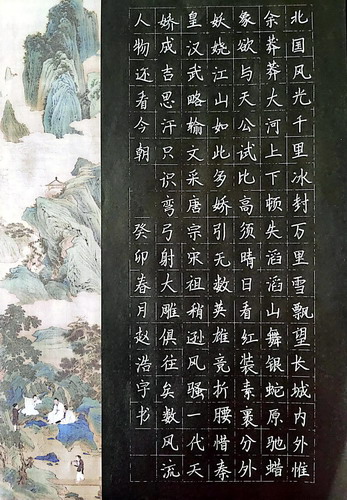 北国风光千里冰封万里雪飘望长城内外惟
余莽莽大河上下顿失滔滔山舞银蛇原驰蜡
象欲与天公试比高须晴日看红装素裹分外
妖娆江山如此多娇引无数英雄竞折腰惜秦
皇汉武略输文采唐宗宋祖稍逊风骚一代天
娇成吉思汗只识弯弓射大雕俱往矣数风流
人物还看今朝 癸卯春月赵浩宇书